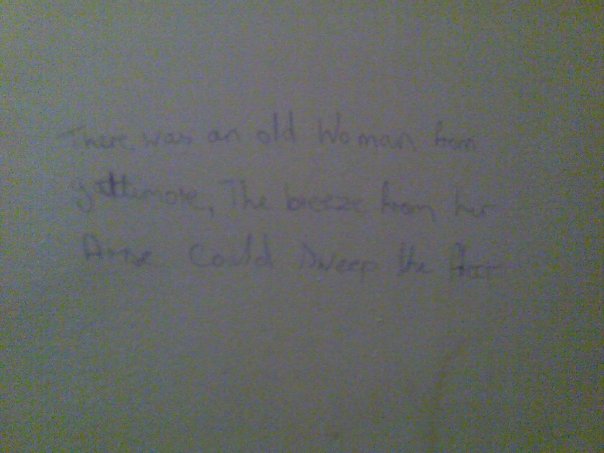 There was an old Woman from
The breeze from her
Could Sweep the